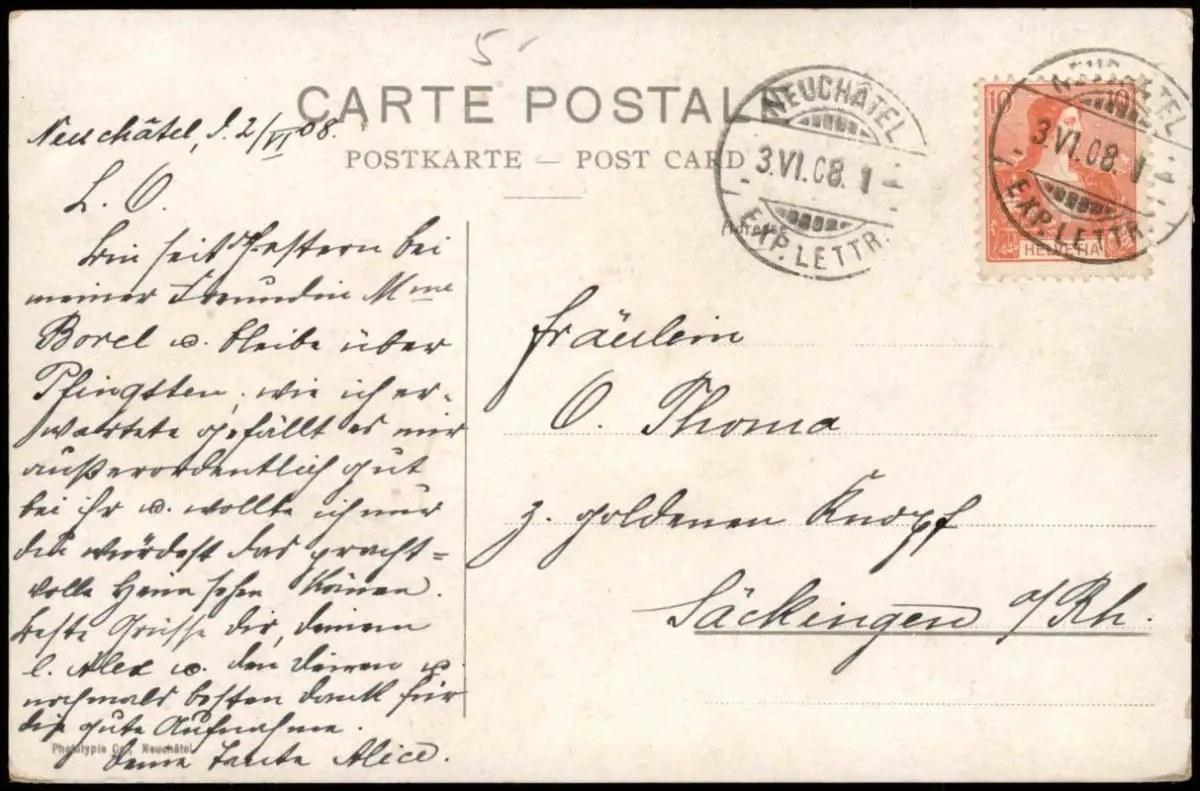 5
CARTE POSTALE
POSTKARTE — POST CARD
Neuchâtel, d. 2/VI 08.
L. O.
Bin seit Gestern bei
meiner Freundin Mme
Borel u. bleibe über
Pfingsten, wie ich er-
wartete gefällt es mir
außerordentlich gut
bei ihr u. wollte ich nur
du würdest das pracht=
volle Heim sehen können.
Beste Grüsse dir, deinem
l. Alex u. den deinen u.
nochmals besten Dank für
die gute Aufnahme.
deine Tante Alice.
Phototypie Co., Neuchâtel
NEUCHÂTEL
3.VI.08. 1
EXP. LETTR.
Adresse
10 10
HELVETIA
NEUCHÂTEL
3.VI.08. 1
EXP. LETTR.
Fräulein
O. Thoma
z. goldenen Knopf
Säckingen a/Rh.